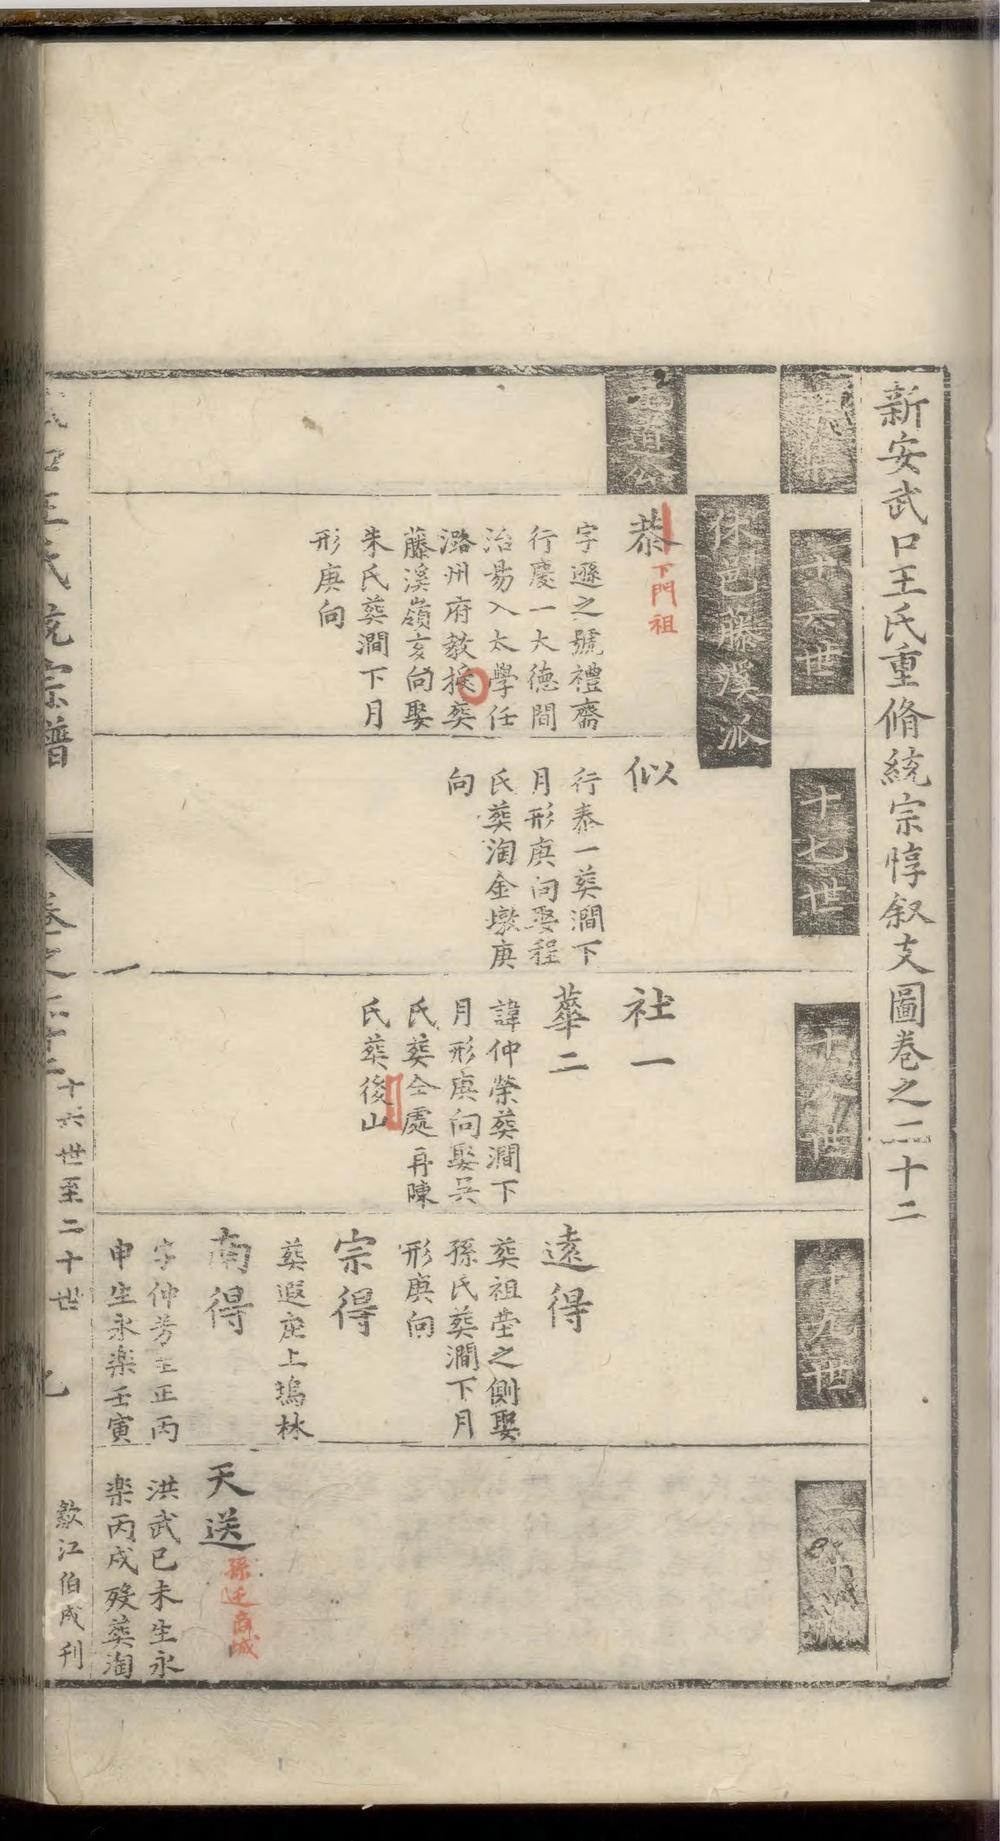 新安武口王氏重脩統宗惇叙支圖卷之二十二
十六世
十七世
十八世
十九世
休邑藤溪派
恭
下門祖
字遜之號禮齋
行慶一大德間
治易入太學任
潞州府教授葬
藤溪嶺亥向娶
朱氏葬澗下月
形庚向
似
行泰一葬澗下
月形庚向娶程
氏葬淘金墩庚
向
社一
華二
諱仲榮葬澗下
月形庚向娶吴
氏葬仝處再陳
氏葬後山
遠得
葬祖塋之側娶
孫氏葬澗下月
形庚向
宗得
葬遐庄上塢林
南得
字仲芳至正丙
申生永楽壬寅
天送
孫迁商城
洪武已未生永
楽丙戌殁葬淘
王氏統宗譜
卷之二十二
十六世至二十世
歙江伯成刊